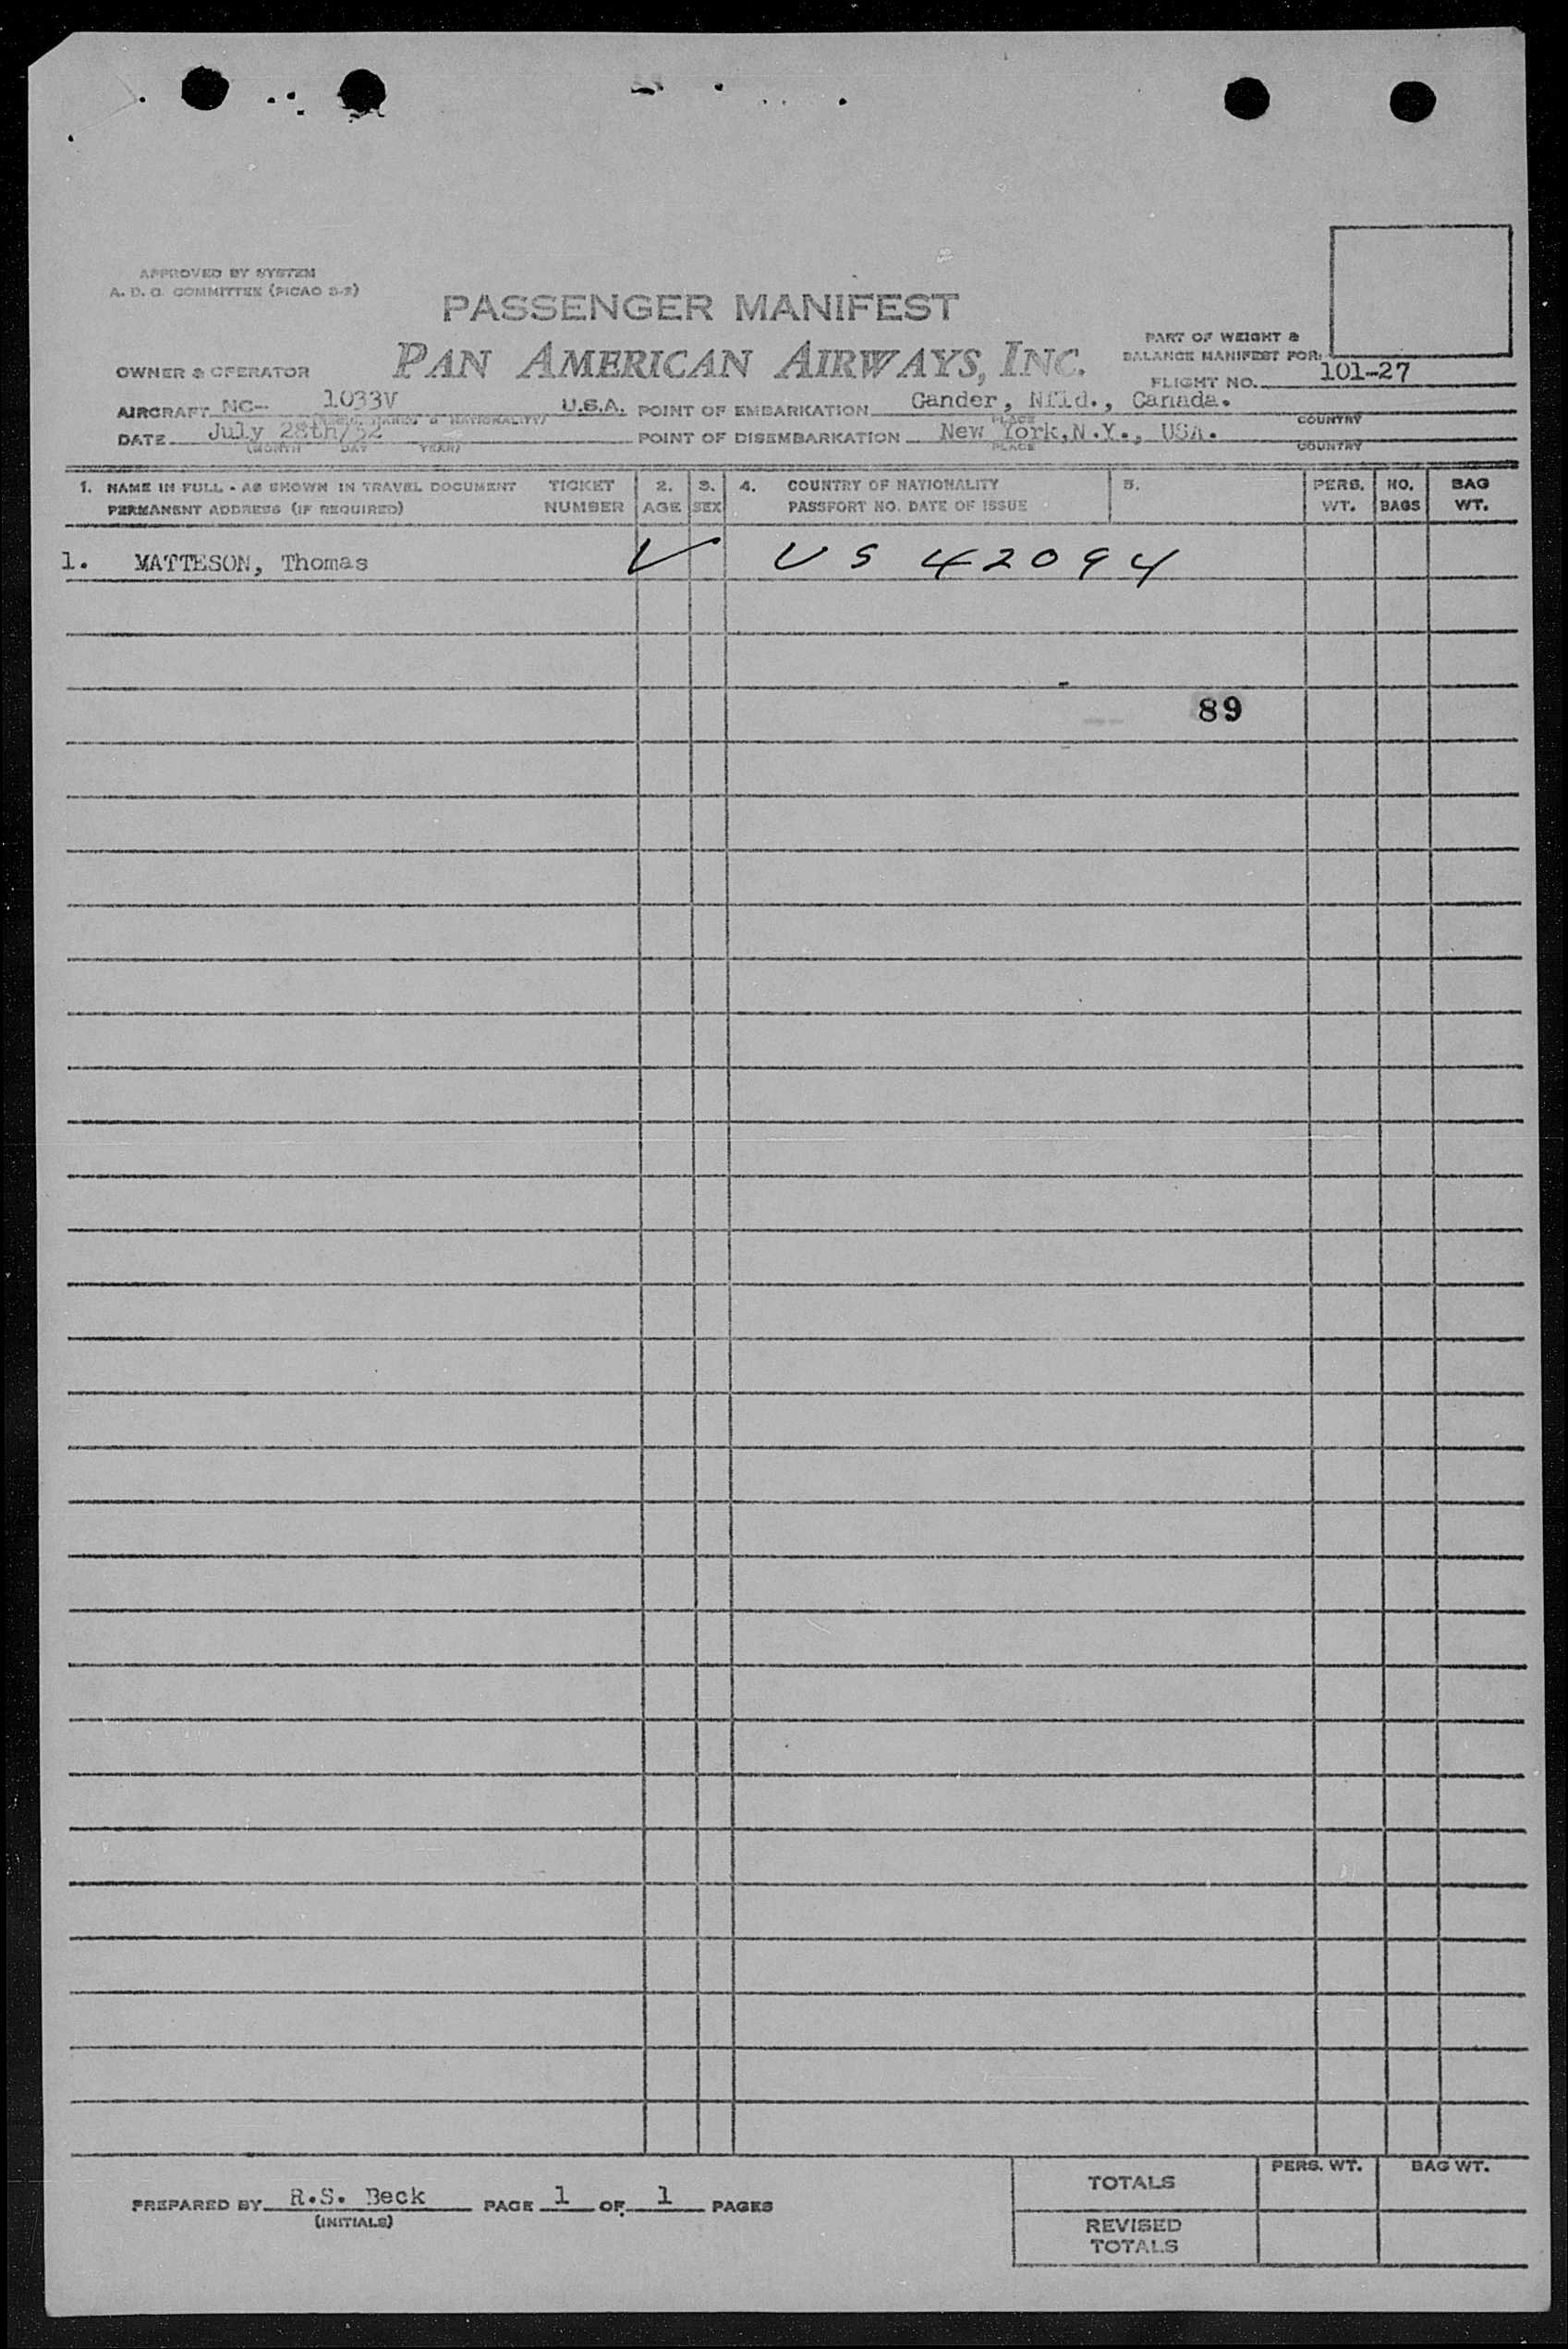 APPROVED BY SYSTEM
A. D. O. COMMITTEE (PICAO D-2)
PASSENGER MANIFEST
PART OF WEIGHT &
BALANCE MANIFEST FOR:
OWNER & OPERATOR PAN AMERICAN AIRWAYS, INC. FLIGHT NO. 101-27
AIRCRAFT NC- 1033V U.S.A. POINT OF EMBARKATION Gander, Nfld., Canada.
& NATIONALITY) PLACE COUNTRY
DATE July 28th/52 POINT OF DISEMBARKATION New York,N.Y., USA.
(MONTH DAY YEAR) PLACE COUNTRY
1. NAME IN FULL - AS SHOWN IN TRAVEL DOCUMENT TICKET 2. 3. 4. COUNTRY OF NATIONALITY 5. PERS. NO. BAG
PERMANENT ADDRESS (IF REQUIRED) NUMBER AGE SEX PASSPORT NO. DATE OF ISSUE WT. BAGS WT.
1. MATTESON, Thomas V US 42094
89
PERS. WT. BAG WT.
TOTALS
PREPARED BY R.S. Beck PAGE 1 OF 1 PAGES
(INITIALS)
REVISED
TOTALS